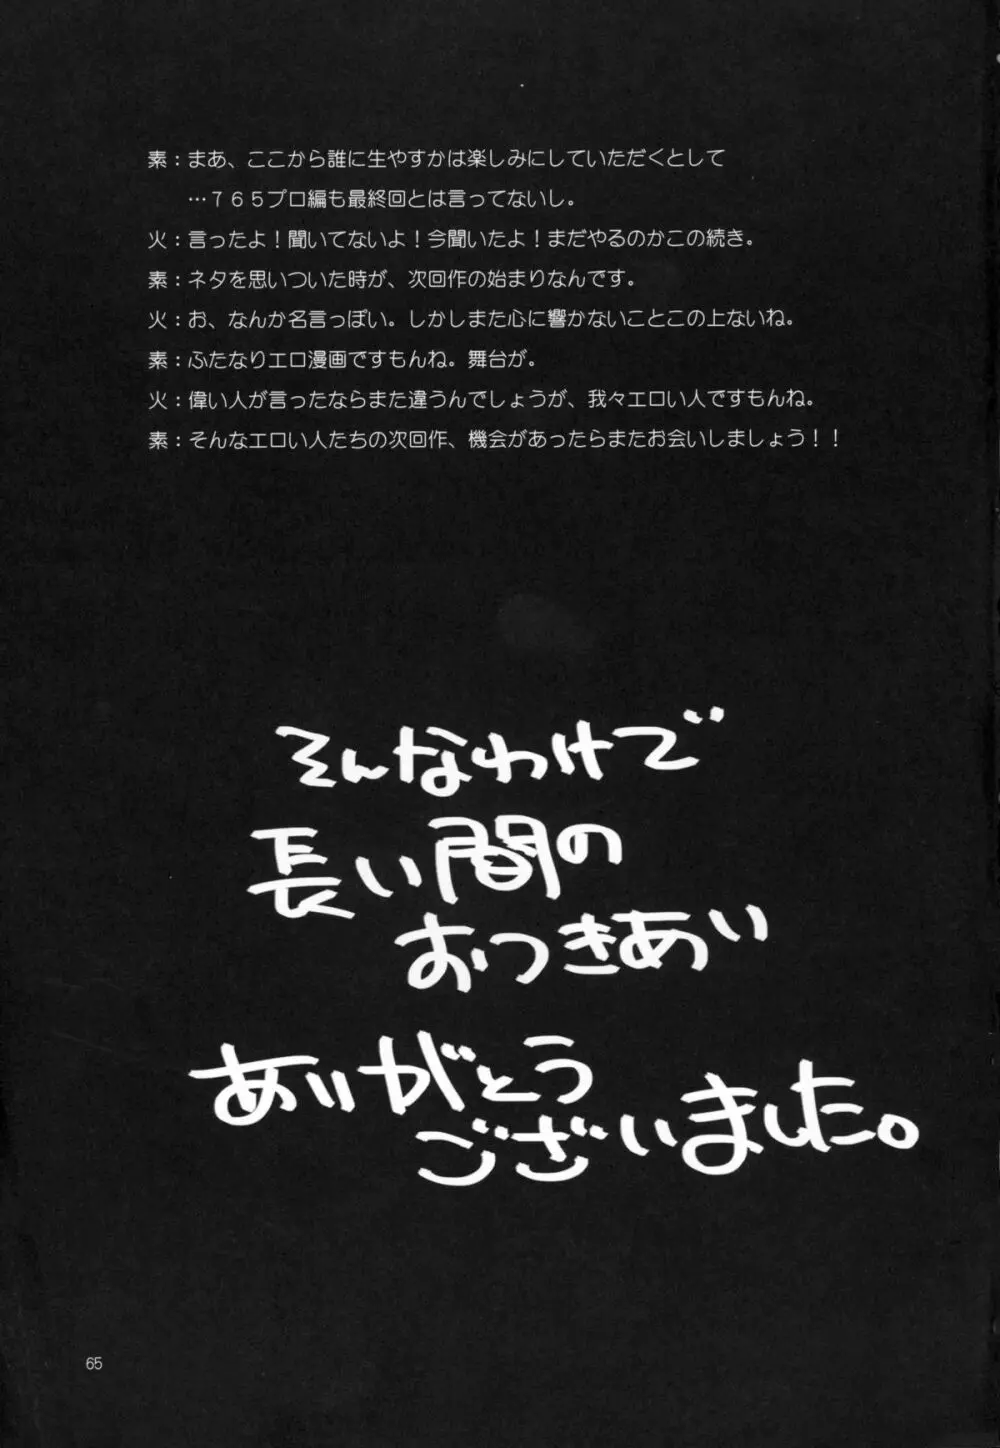 素：まあ、ここから誰に生やすかは楽しみにしていただくとして
…７６５プロ編も最終回とは言ってないし。
火：言ったよ！聞いてないよ！今聞いたよ！まだやるのかこの続き。
素：ネタを思いついた時が、次回作の始まりなんです。
火：お、なんか名言っぽい。しかしまた心に響かないことこの上ないね。
素：ふたなりエロ漫画ですもんね。舞台が。
火：偉い人が言ったならまた違うんでしょうが、我々エロい人ですもんね。
素：そんなエロい人たちの次回作、機会があったらまたお会いしましょう！！
そんなわけで
長い間の
おつきあい
ありがとう
ございました。
65